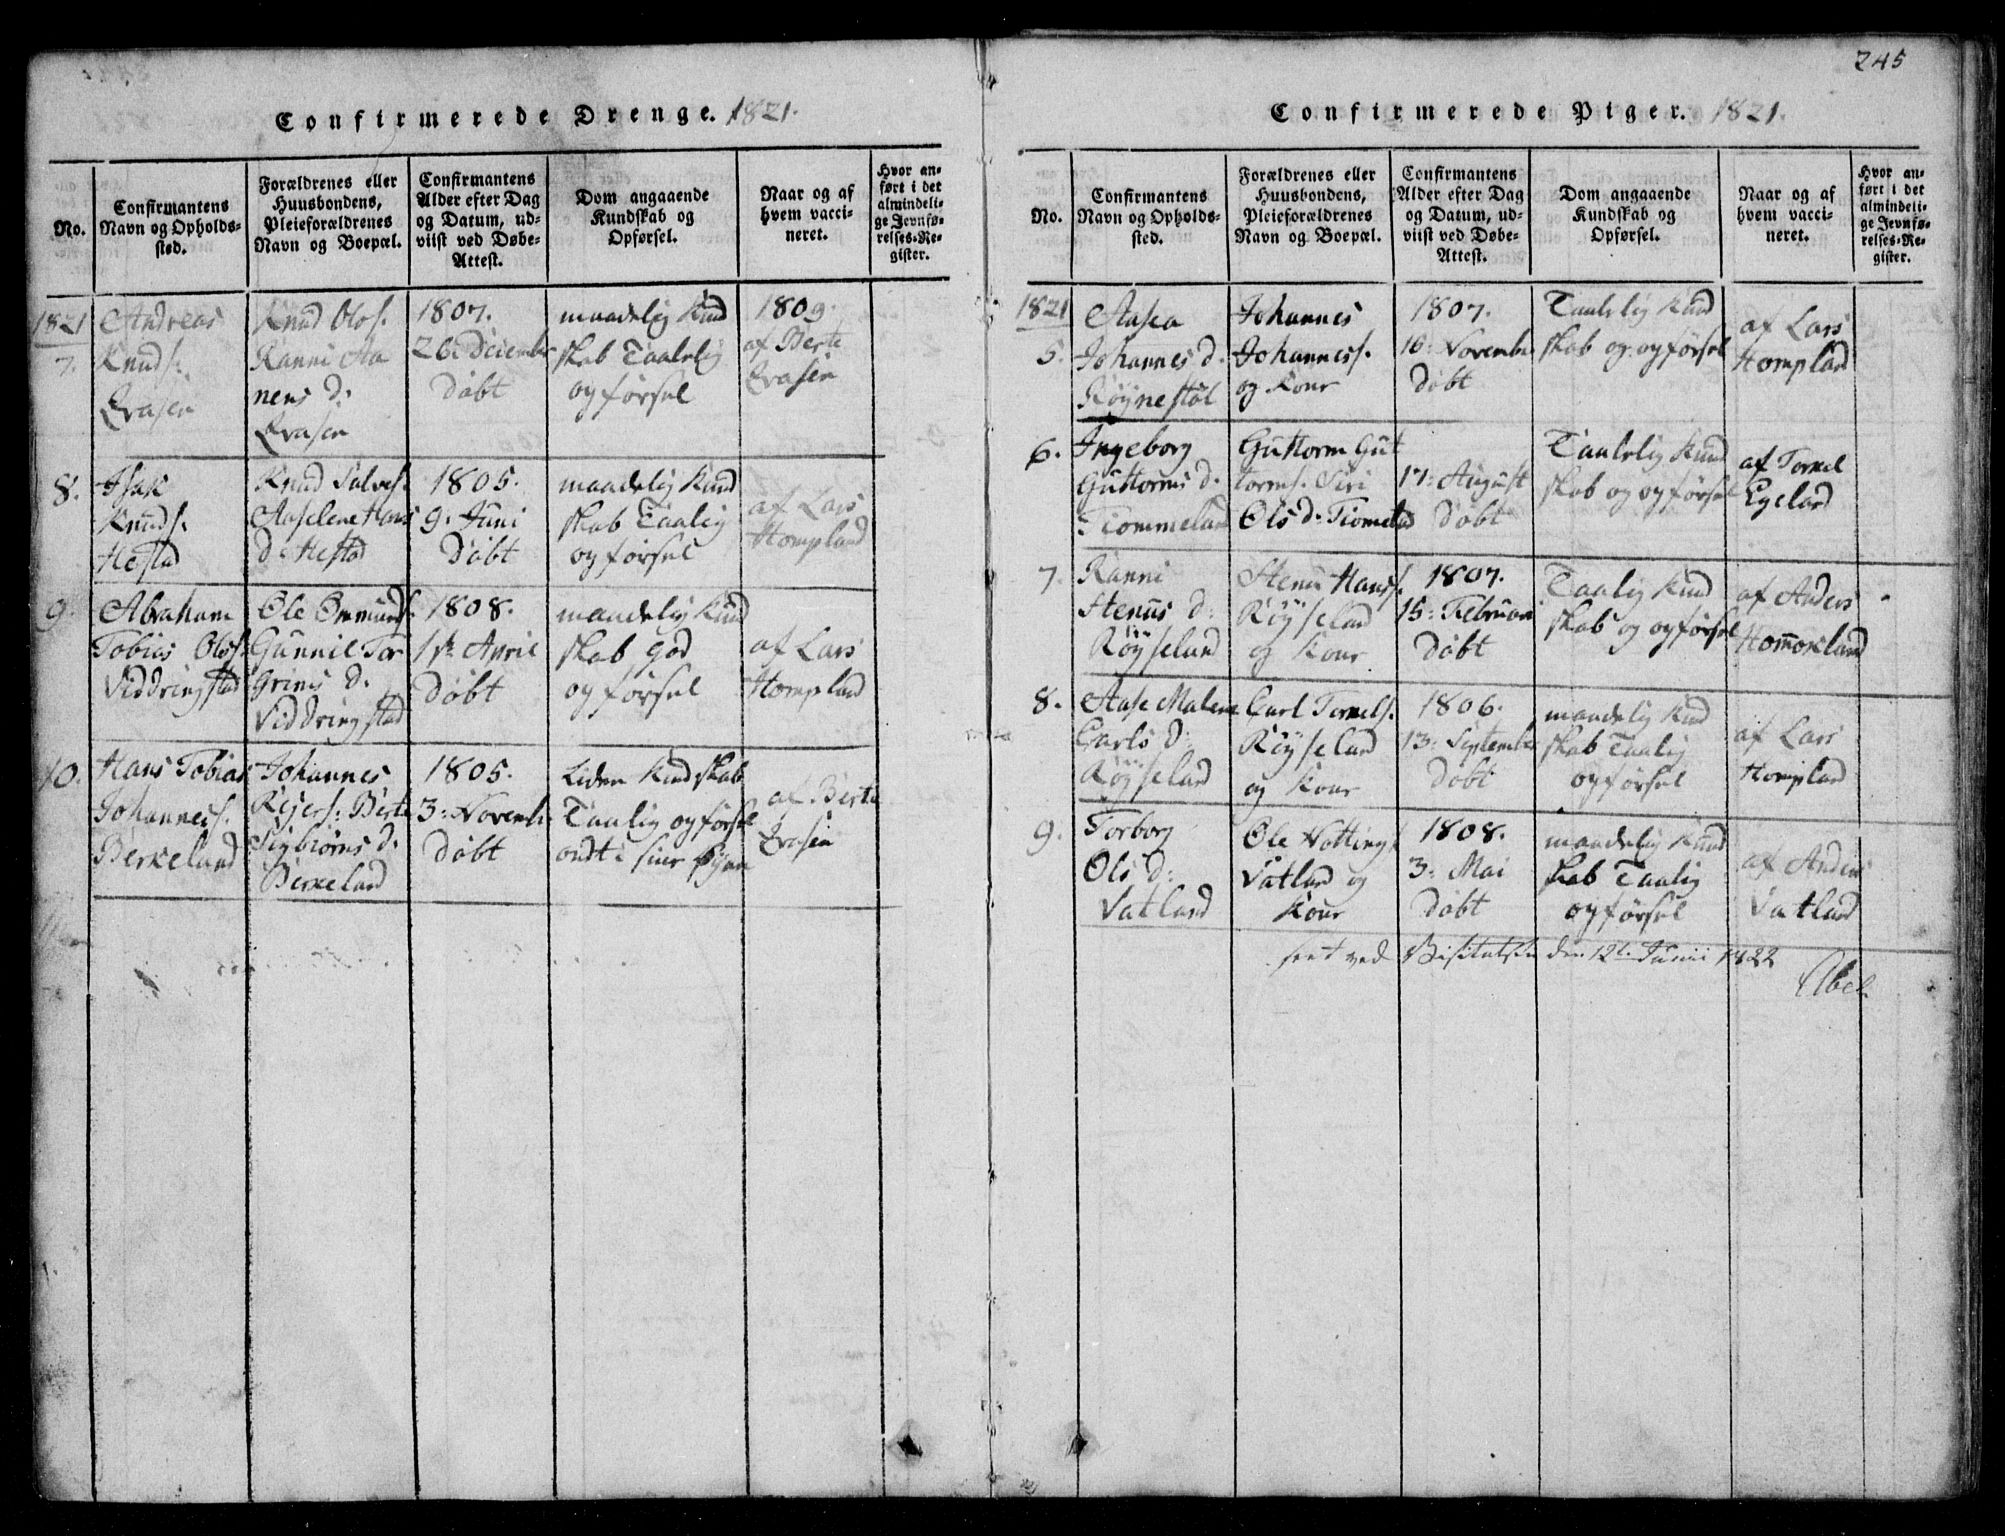 245
Confirmerede Drenge. 1821.
No.
Confirmantens
Navn og Opholds-
sted.
Forældrenes eller
Huusbondens,
Pleieforældrenes
Navn og Boepæl.
Confirmantens
Alder efter Dag
og Datum, ud-
viist ved Døbe-
Attest.
Dom angaaende
Kundskab og
Opførsel.
Naar og af
hvem vacci-
neret.
Hvor an-
ført i det
almindeli-
ge Jevnfø-
relses-Re-
gister.
1821
7.
Andreas
Knuds.
Knud Olos.
Ranni Aa
nens d:
1807.
26: Deicember
døbt
maadelig Kund
skab Taalelig
opførsel
1809.
af Berte
8.
Isak
Knuds.
Hestad
Knud Salves.
Aaselene Hans
D: Hestad
1805.
9: Juni
Døbt
maadelig Kund
skab Taalig
opførsel
af Lars
Hompland
9.
Abraham
Tobias Olos.
Viddringstad
Ole Ommunds.
Gunnil Tor
grims d.
Viddringstad
1808.
1ste April
Døbt
maadelig Kund
skab god
opførsel
af Lars
Hompland
10.
Hans Tobias
Johanness.
Berkeland
Johannes
Rejers: Berte
Sigbiørns d.
Berkeland
1805.
3: Novemb.
Døbt
Liden Kundskab
Taalig opførsel
ondt i sine
af Berte
Confirmerede Piger. 1821.
No.
Confirmantens
Navn og Opholds-
sted.
Forældrenes eller
Huusbondens,
Pleieforældrenes
Navn og Boepæl.
Confirmantens
Alder efter Dag
og Datum, ud-
viist ved Døbe-
Attest.
Dom angaaende
Kundskab og
Opførsel.
Naar og af
hvem vacci-
neret.
Hvor an-
ført i det
almindeli-
ge Jevnfø-
relses-Re-
gister.
1821
5.
Aasea
Johannes d.
Røynestøl
Johannes
Johanness.
og Kone
1807.
10: November
Døbt
Taalelig Kund
skab og opførsel
af Lars
Hompland
6.
Ingeborg
Guttorms d.
Tiommeland
Guttorm Gut
torms. Siri
Ols d: Tiomeland
17: August
Døbt
Taalelig Kund
skab og opførsel
af Torkel
Egeland
7.
Ranni
Stenus d:
Røyseland
Stenu Hanss.
Røyseland
og Kone
1807.
15: Februari
Døbt
Taalig Kund
skab og opførsel
af Anders
Homoxland
8.
Aase Malene
Carls d:
Røyseland
Carl Torkels.
Røyseland
og Kone
1806.
13: September
Døbt
maadelig Kund
skab Taalig
opførsel
af Lars
Hompland
9.
Torborg
Ols d:
Vatland
Ole Notting
Vatland og
Kone
1808.
3: Mai
Døbt
maadelig Kund
skab Taalig
opførsel
af Anders
Vatland
seet ved Visitatsen den 12te Junii 1822